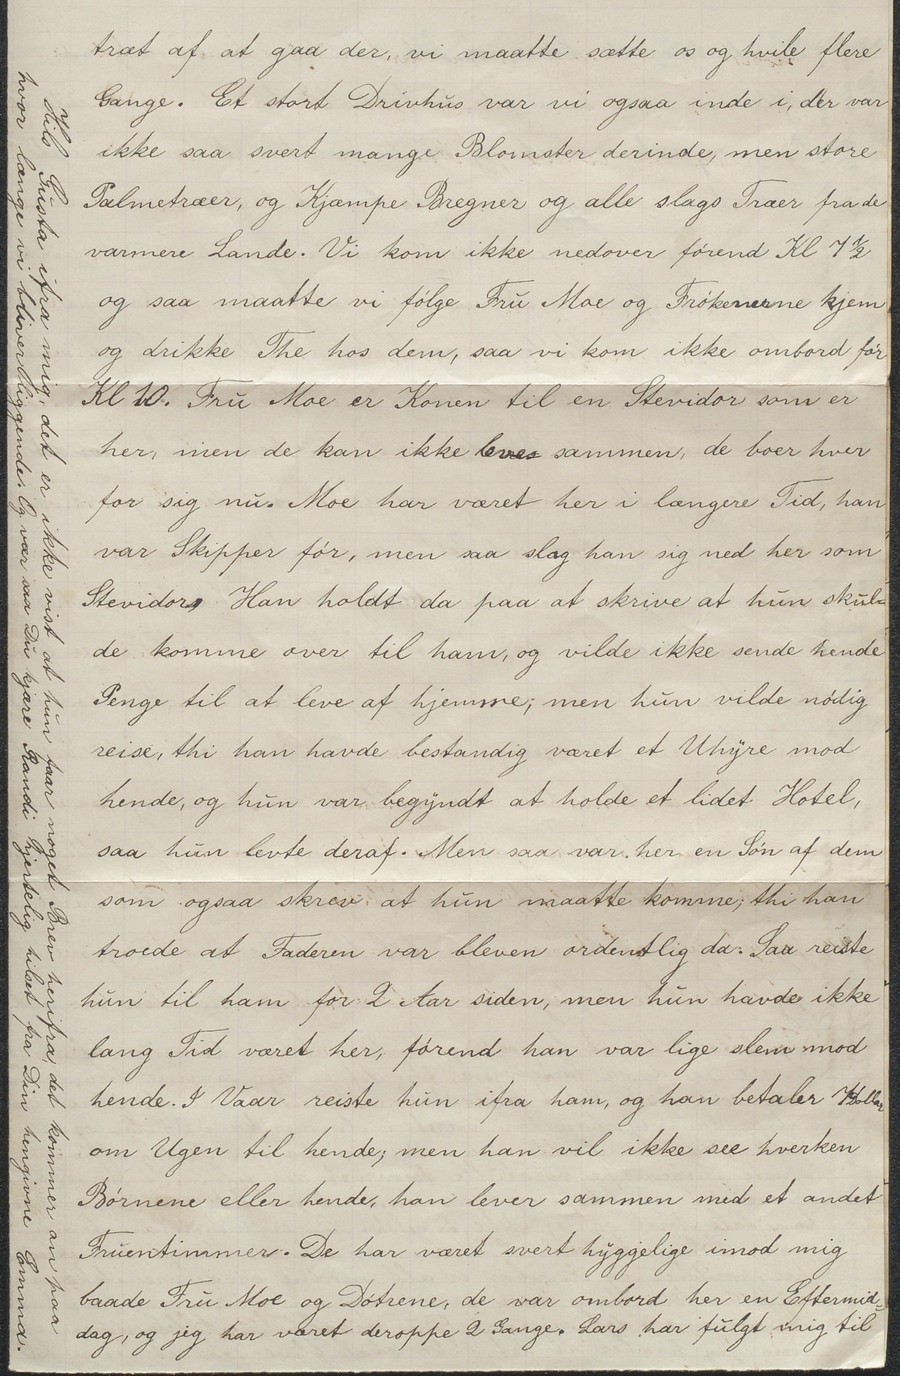 træt af at gaa der, vi maatte sætte os og hvile flere
Gange. Et stort Drivhus var vi ogsaa inde i, der var
ikke saa svert mange Blomster derinde, men store
Palmetræer, og Kjæmpe Bregner og alle slags Træer fra de
varmere Lande. Vi kom ikke nedover førend Kl 7½
og saa maatte vi følge Fru Moe og Frøkenerne hjem
og drikke The hos dem, saa vi kom ikke ombord før
Kl 10. Fru Moe er Konen til en Stevidor som er
her, men de kan ikke leve sammen, de boer hver
for sig nu. Moe har været her i længere Tid, han
var Skipper før, men saa slog han sig ned her som
Stevidor, Han holdt da paa at skrive at hun skul-
de komme over til ham, og vilde ikke sende hende
Penge til at leve af hjemme; men hun vilde nødig
reise, thi han havde bestandig været et Uhyre mod
hende, og hun var begyndt at holde et lidet Hotel,
saa hun levte deraf. Men saa var her en Søn af dem
som ogsaa skrev at hun maatte komme, thi han
troede at Faderen var bleven ordentlig da. Saa reiste
hun til ham for 2 Aar siden, men hun havde ikke
lang Tid været her, førend han var lige slem mod
hende. I Vaar reiste hun ifra ham, og han betaler Dollar
om Ugen til hende; men han vil ikke see hverken
Børnene eller hende, han lever sammen med et andet
Fruentimmer. De har været svert hyggelige imod mig
baade Fru Moe og Døtrene, de var ombord her en Eftermid-
dag, og jeg har været deroppe 2 Gange. Lars har fulgt mig til
Hils Gusta ifra mig, det er ikke vist at hun faar noget Brev herifra det kommer an paa
hvor længe vi bliver liggende. Og vær saa Du kjære Randi hjertelig hilset fra Din hengivne Emma.